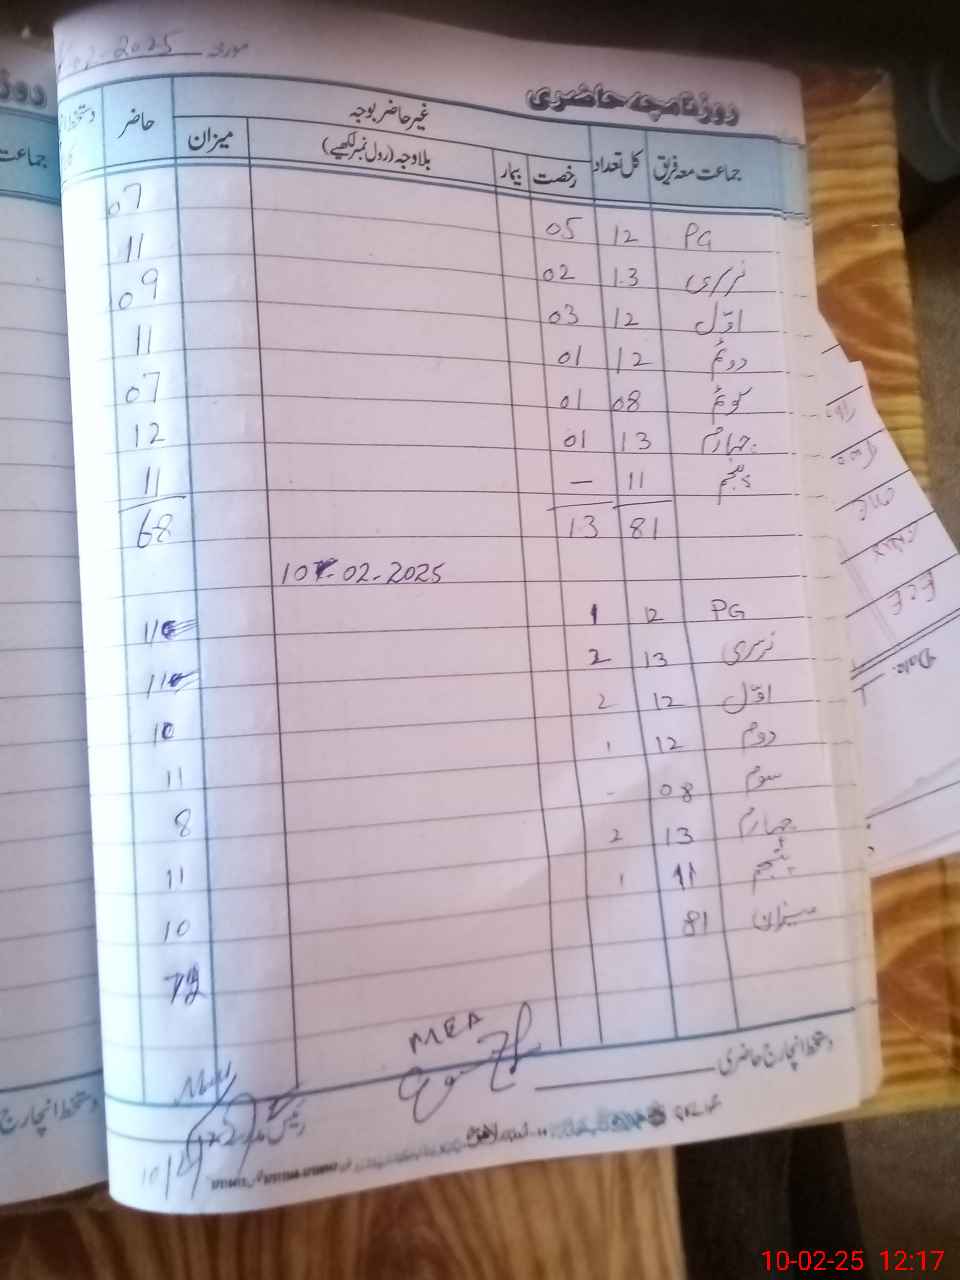 02-2025 مورخہ
روزنامچہ حاضری
جماعت معہ فریق کل تعداد غیر حاضر بوجہ حاضر
رخصت بیمار بلا وجہ (رول نمبر لکھیے) میزان
PG 12 05 07
نرسری 13 02 11
اوّل 12 03 09
دوئم 12 01 11
سوئم 08 01 07
چہارم 13 01 12
پنجم 11 — 11
81 13 68
10-02-2025
PG 12 1 11
نرسری 13 2 11
اوّل 12 2 10
دوم 12 1 11
سوم 08 - 8
چہارم 13 2 11
پنجم 11 1 10
میزان 81
MEA
دستخط انچارج حاضری
Date.
10-02-25 12:17